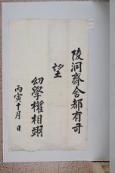 陵洞齋舍都有司
望
幼學權相翊
丙寅十月 日